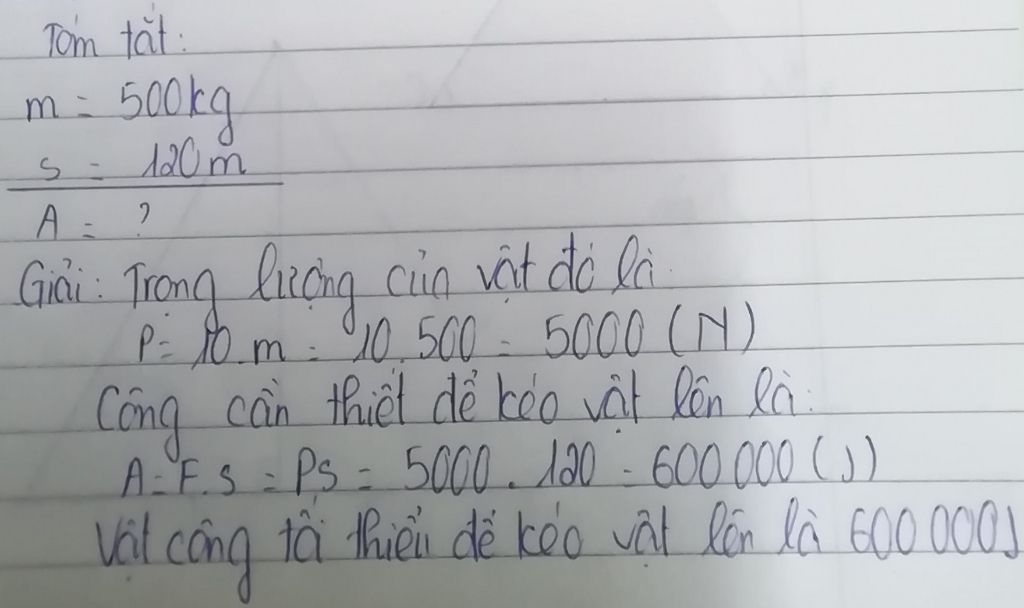 Tóm tắt:
m = 500kg
s = 120m
A = ?
Giải: Trọng lượng của vật đó là
P = 10.m = 10.500 = 5000 (N)
Công cần thiết để kéo vật lên là:
A = F.s = P.s = 5000 . 120 = 600 000 (J)
Vật công tối thiểu để kéo vật lên là 600 000J